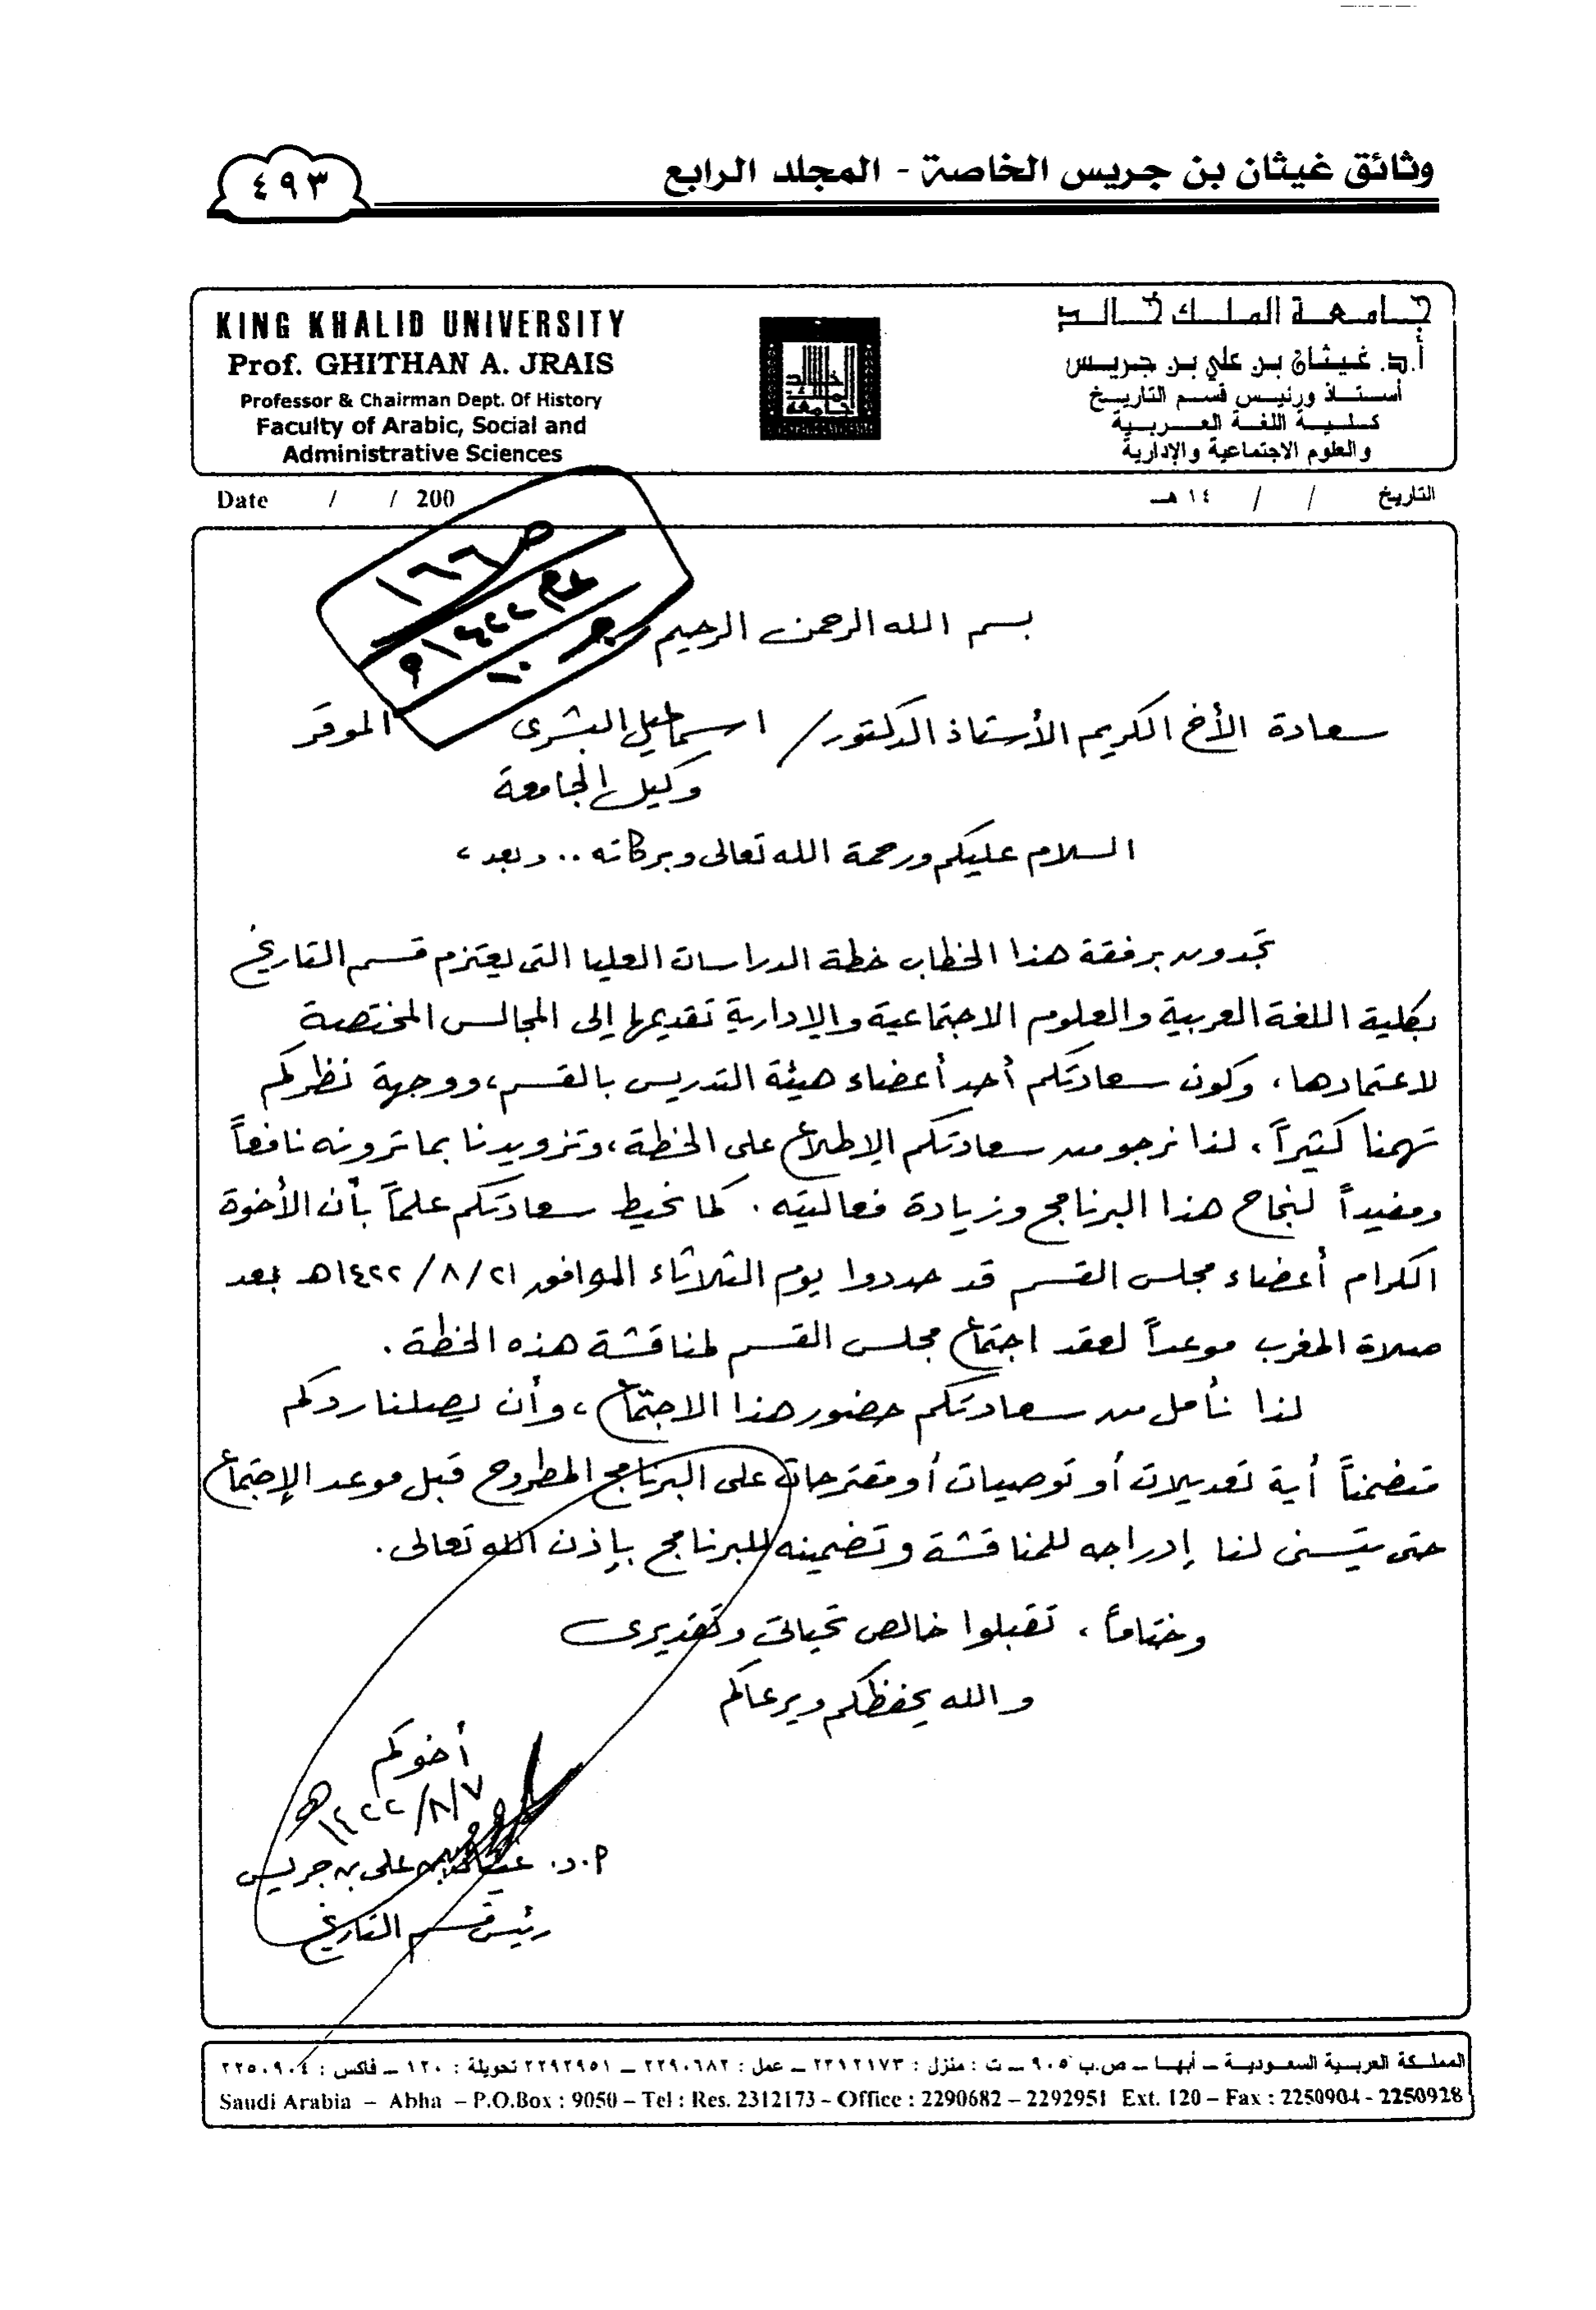 وثائق غيثان بن جريس الخاصة - المجلد الرابع
٤٩٣
جامعة الملك خالد
أ.د. غيثان بن علي بن جريس
أستاذ ورئيس قسم التاريخ
كلية اللغة العربية
والعلوم الاجتماعية والإدارية
KING KHALID UNIVERSITY
Prof. GHITHAN A. JRAIS
Professor & Chairman Dept. Of History
Faculty of Arabic, Social and
Administrative Sciences
التاريخ / / ١٤ هـ
Date / / 200
ص ١٦٦
بسم الله الرحمن الرحيم
سعادة الأخ الكريم الأستاذ الدكتور/ اسماعيل البشري الموقر
وكيل الجامعة
السلام عليكم ورحمة الله تعالى وبركاته .. وبعد ،
تجدون برفقة هذا الخطاب خطة الدراسات العليا التى يعتزم قسم التاريخ
بكلية اللغة العربية والعلوم الاجتماعية والإدارية تقديمها إلى المجالس المختصة
لاعتمادها ، وكون سعادتكم أحد أعضاء هيئة التدريس بالقسم ، ووجهة نظركم
تهمنا كثيراً ، لذا نرجو من سعادتكم الإطلاع على الخطة ، وتزويدنا بما ترونه نافعاً
ومفيداً لنجاح هذا البرنامج وزيادة فعاليته . كما نحيط سعادتكم علماً بأن الأخوة
الكرام أعضاء مجلس القسم قد حددوا يوم الثلاثاء الموافق ٢١/٨/١٤٢٢هـ بعد
صلاة المغرب موعداً لعقد اجتماع مجلس القسم لمناقشة هذه الخطة .
لذا نأمل من سعادتكم حضور هذا الاجتماع ، وأن يصلنا ردكم
متضمناً أية تعديلات أو توصيات أو مقترحات على البرنامج المطروح قبل موعد الإجتماع
حتى يتسنى لنا إدراجه للمناقشة وتضمينه للبرنامج بإذن الله تعالى .
وختاماً ، تقبلوا خالص تحياتى وتقديرى
والله يحفظكم ويرعاكم
أخوكم
٧/٨/١٤٢٢هـ
أ.د. غيثان بن على بن جريس
رئيس قسم التاريخ
المملكة العربية السعودية – أبها – ص.ب ٩٠٥٠ – ت : منزل : ٢٣١٢١٧٣ – عمل : ٢٢٩٠٦٨٢ – ٢٢٩٢٩٥١ تحويلة : ١٢٠ – فاكس : ٢٢٥٠٩٠٤
Saudi Arabia – Abha – P.O.Box : 9050 – Tel : Res. 2312173 – Office : 2290682 – 2292951 Ext. 120 – Fax : 2250904 - 2250928